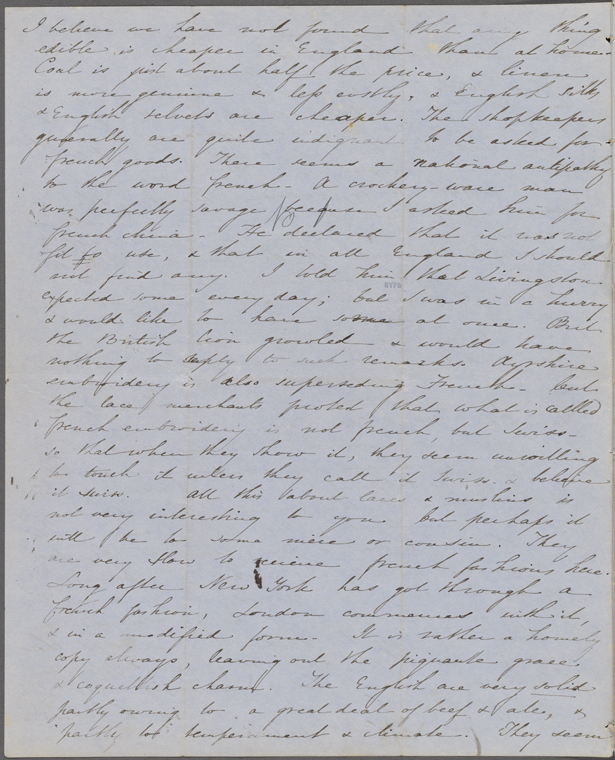 I believe we have not found that any thing
edible is cheaper in England than at home.
Coal is just about half the price, & linen
is more genuine & less costly, & English silks
& English velvets are cheaper. The shopkeepers
generally are quite indignant to be asked for
French goods. There seems a national antipathy
to the word French - A crockery-ware man
was perfectly savage because I asked him for
French china - He declared that it was not
fit to use, & that in all England I should
not find any. I told him that Livingston
expected some every day; but I was in a hurry
& would like to have some at once. But
the British lion growled & would have
nothing to reply to such remarks. Ayrshire
embroidery is also superseding French - but
the lace merchants protest that what is called
French embroidery is not French, but Swiss -
so that when they show it, they seem unwilling
to touch it unless they call it Swiss & believe
it Swiss. All this about laces & muslins is
not very interesting to you but perhaps it
will be to some niece or cousin. They
are very slow to receive French fashions here.
Long after New York has got through a
French fashion, London commences with it,
& in a modified form - It is rather a homely
copy always, leaving out the piquante grace
& coquettish charm. The English are very solid
partly owing to a great deal of beef & ale, &
partly to temperament & climate. They seem
NYPL